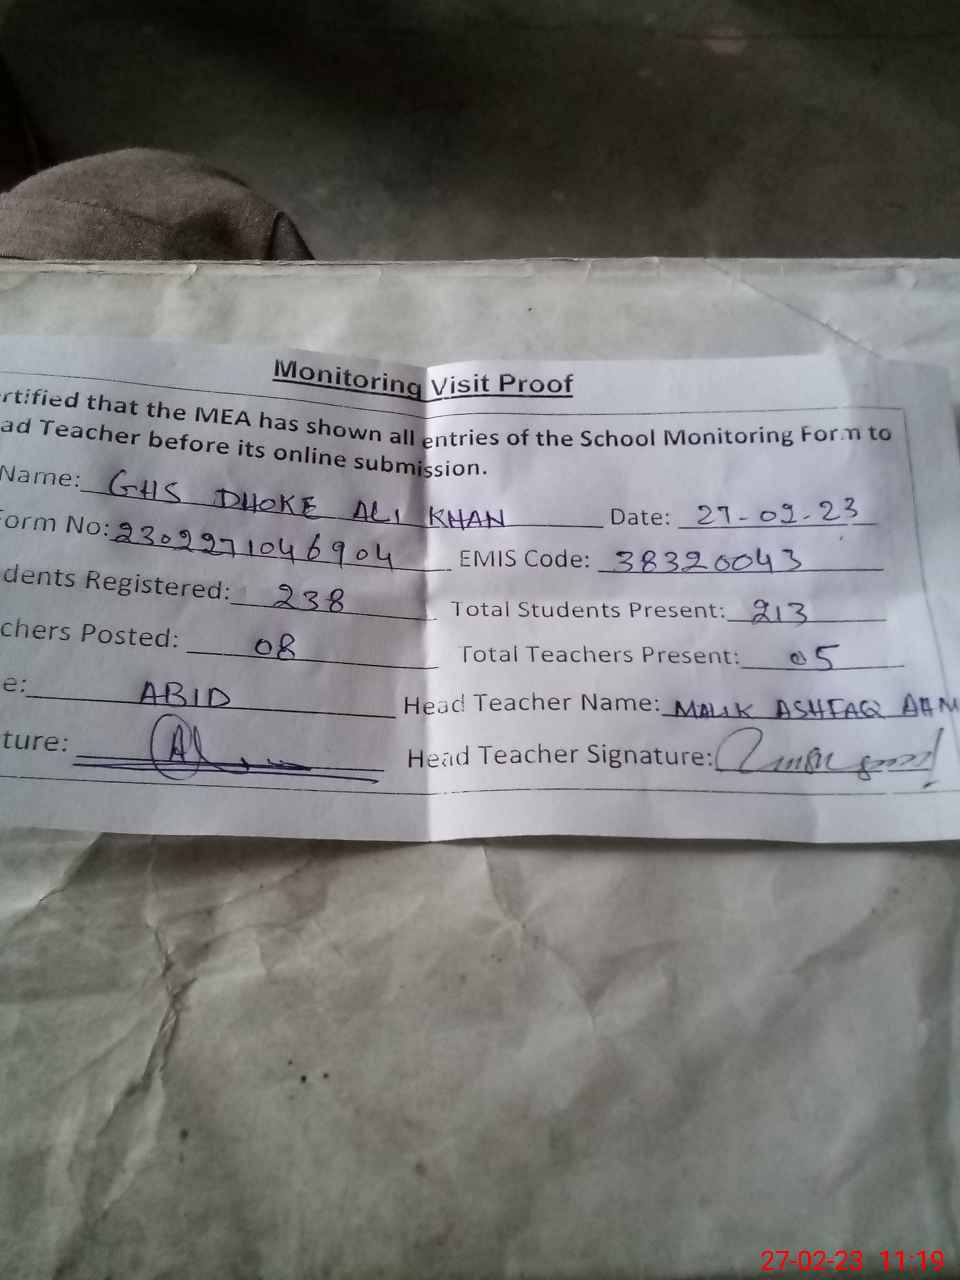 Monitoring Visit Proof
rtified that the MEA has shown all entries of the School Monitoring Form to
ad Teacher before its online submission.
Name: GHS DHOKE ALI KHAN Date: 27-02-23
orm No: 230227104 6904 EMIS Code: 38320043
dents Registered: 238 Total Students Present: 213
chers Posted: 08 Total Teachers Present: 05
e: ABID Head Teacher Name: MALIK ASHFAQ AHM
ture: Head Teacher Signature:
27-02-23 11:19